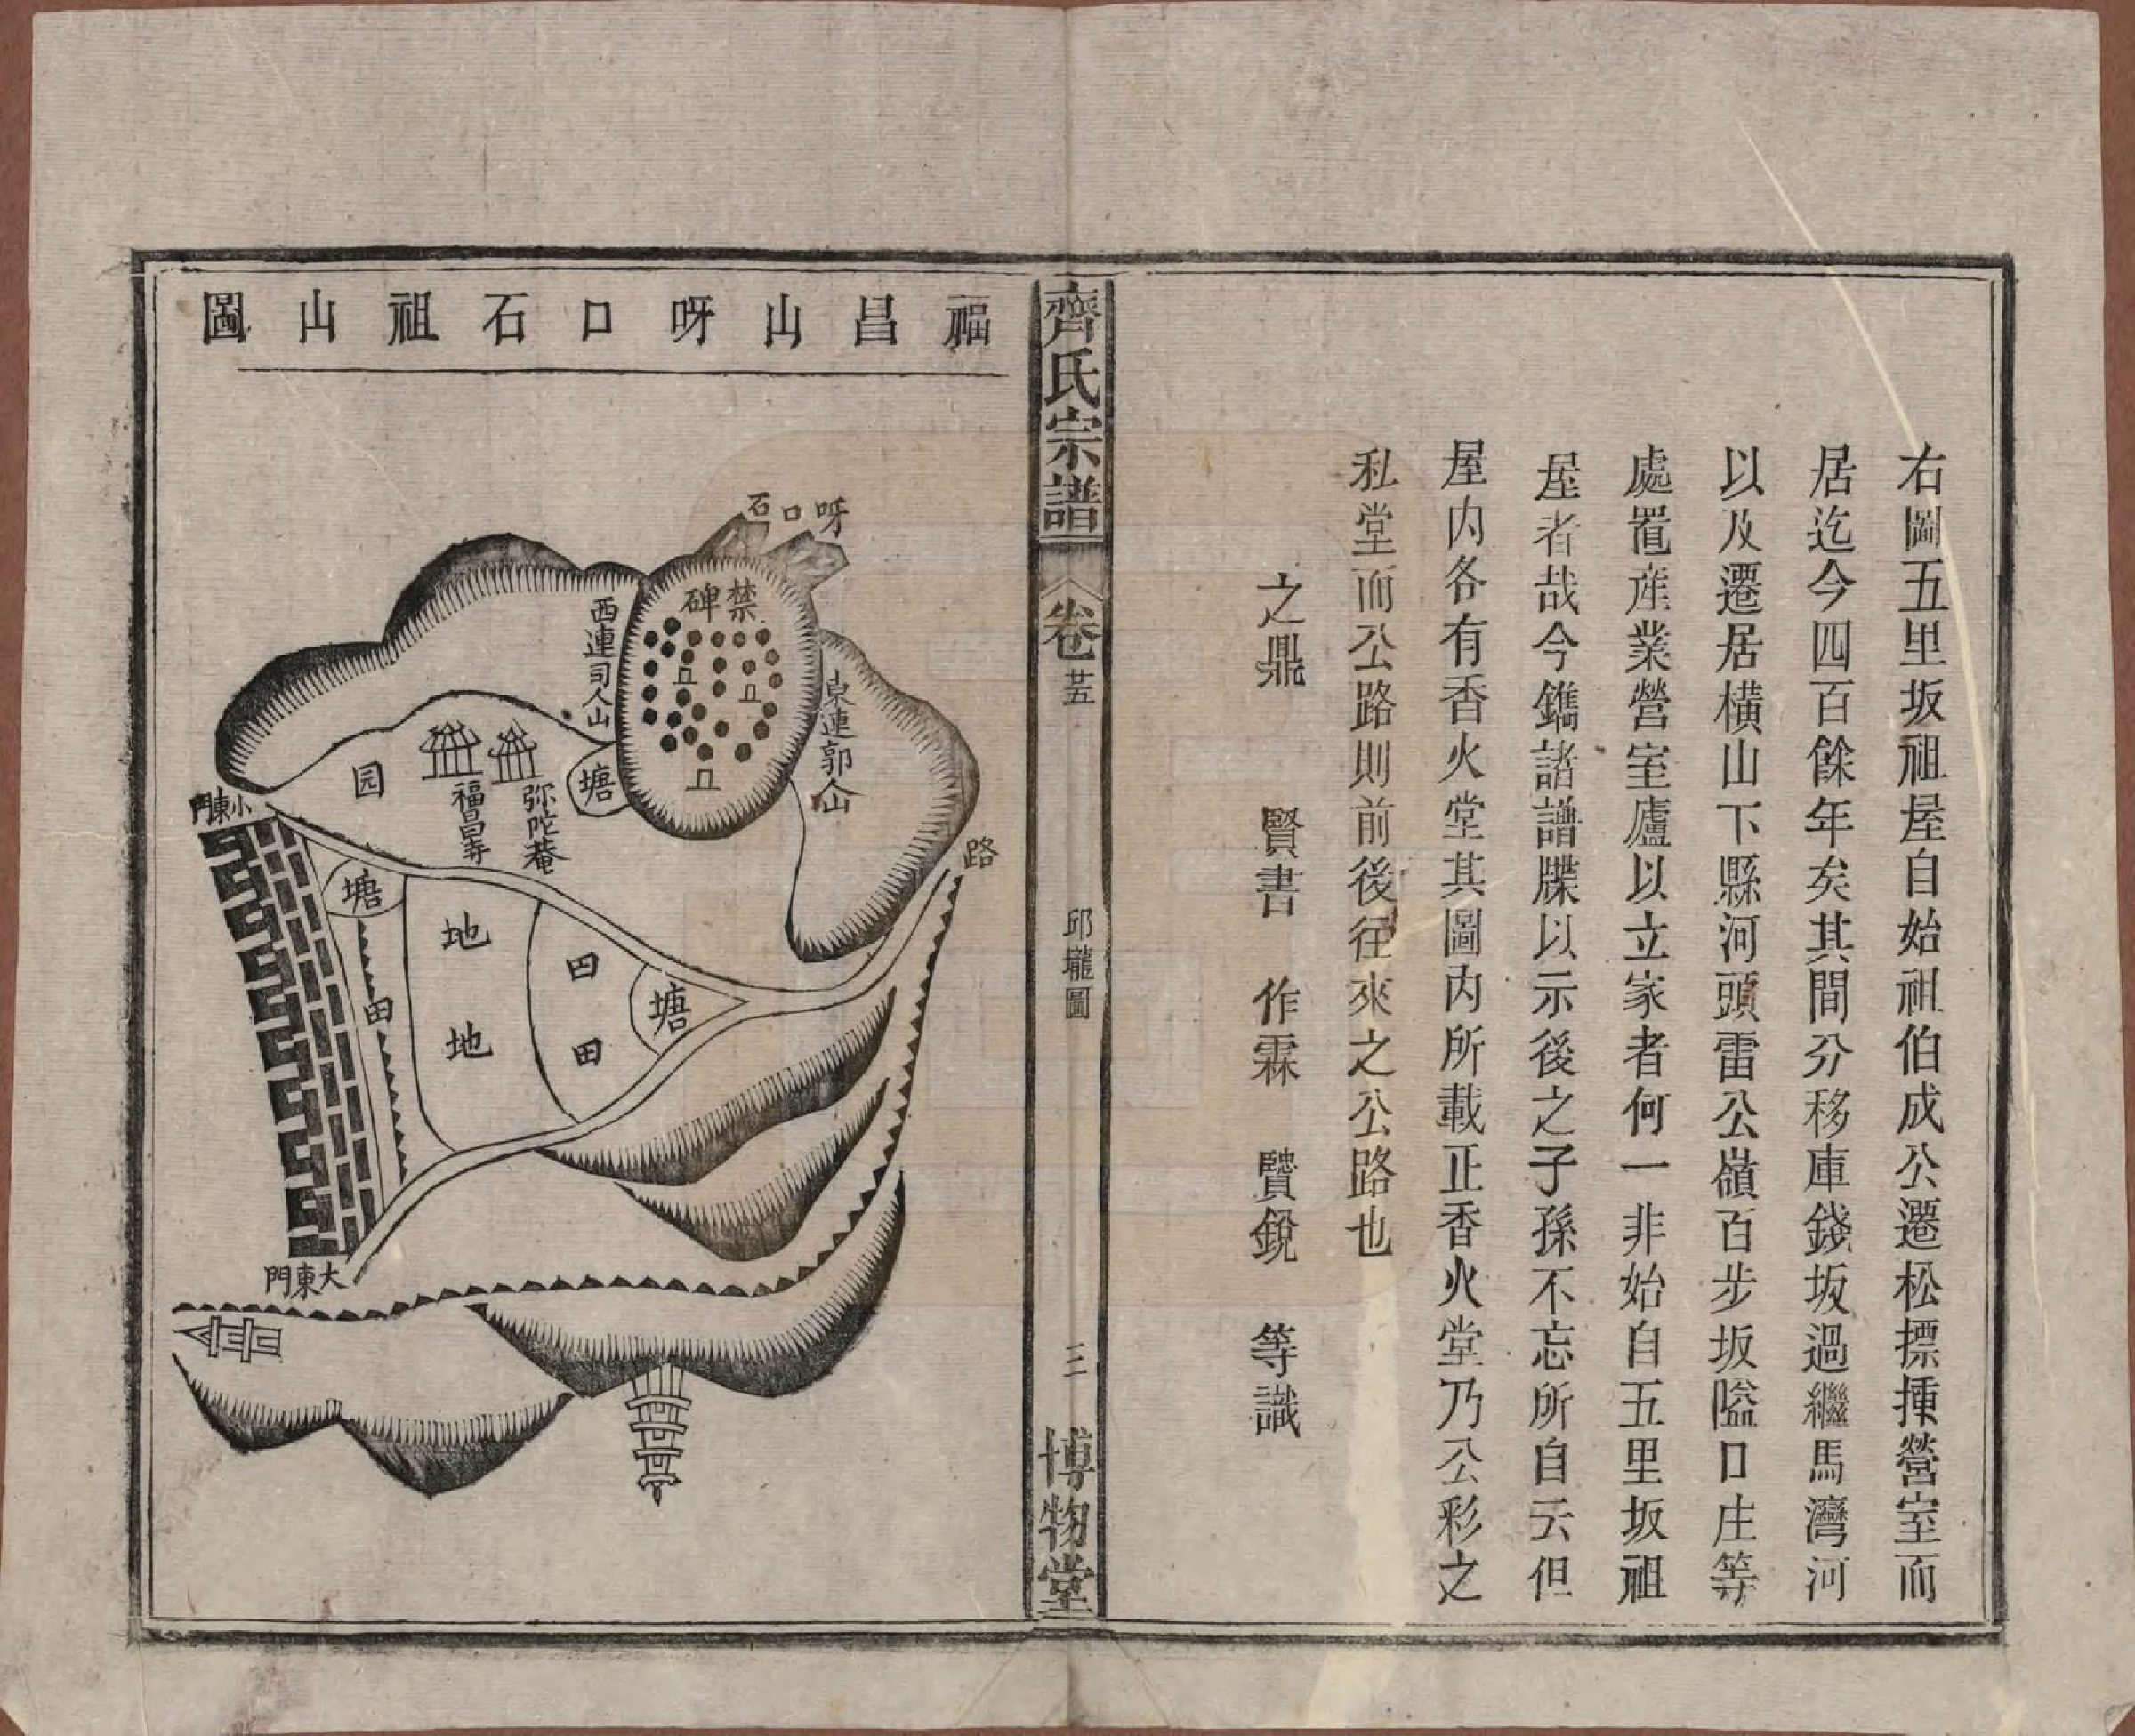 右圖五里坂祖屋自始祖伯成公遷松摽揰營室而
居迄今四百餘年矣其間分移庫錢坂過繼馬灣河
以及遷居橫山下縣河頭雷公嶺百步坂隘口庄等
處置産業營室廬以立家者何一非始自五里坂祖
屋者哉今鐫諸譜牒以示後之子孫不忘所自云但
屋内各有香火堂其圖内所載正香火堂乃公彩之
私堂而公路則前後往來之公路也
之鼎 賢書 作霖 贒銳 等識
齊氏宗譜 卷廿五 邱壠圖 三 博物堂
福昌山呀口石祖山圖
呀口石
禁碑
西連司人山
東連郭人山
塘
弥陀菴
福昌寺
园
小東門
路
塘
地
地
田
田
塘
田
大東門